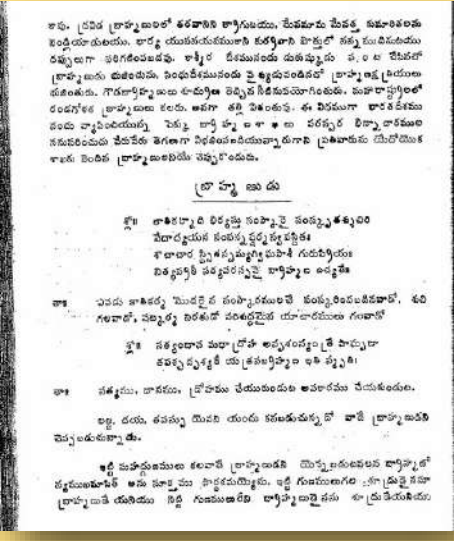 కావు. ద్రవిడ బ్రాహ్మణులలో తరవానిని త్రాగుటయు, మేనమామ మేనత్త కుమారితలను
పెండ్లియాడుటయు, భార్య యుపనయనముకాని కుర్రవాని పొత్తులో నన్నము దినుటయు
తప్పులుగా పరిగణింపబడవు. కాశ్మీర దేశమునందు తురుష్కుడు వంట చేసినచో
బ్రాహ్మణుడు భుజించును. సింధుదేశమునందు వైశ్యుడు వండినచో బ్రాహ్మణక్షత్రియులు
భుజింతురు. గౌడబ్రాహ్మణులు శూద్రులు తెచ్చిన నీటినుపయోగింతురు. మహారాష్ట్రులలో
రండగోళక బ్రాహ్మణులు కలరు. అనగా తల్లి వితంతువు. ఈ విధముగా భారతదేశము
నందు వ్యాపించియున్న పెక్కు బ్రాహ్మణశాఖలు పరస్పర భిన్నాచారముల
ననుసరించుచు వేరువేరు తెగలుగా విభజింపబడియున్నారుగాని ప్రతివారును యేదోయొక
శాఖకు చెందిన బ్రాహ్మణులనియే చెప్పుకొందురు.
బ్రాహ్మణుడు
శ్లో॥ జాతకర్మాది భిర్యస్తు సంస్కారై సంస్కృతశ్శుచిః
వేదాధ్యయన సంపన్న
శౌచాచార గురుప్రియః
నిత్యవ్రతీ సత్యపరస్సవై బ్రాహ్మణ ఉచ్యతే॥
తా॥ ఎవడు జాతకర్మ మొదలైన సంస్కారములచే సంస్కరింపబడినవాడో, శుచి
గలవాడో, షట్కర్మ నిరతుడో పరిశుద్ధమైన యాచారములు గలవాడో
శ్లో॥ సత్యందాన మథాద్రోహ అనృశంస్యం త్రపా ఘృణా
తపశ్చ దృశ్యతే యత్ర సబ్రాహ్మణ ఇతి స్మృతః।
తా॥ సత్యము, దానము, ద్రోహము చేయకుండుట అపకారము చేయకుండుట,
లజ్జ, దయ, తపస్సు యెవని యందు కనబడుచున్నదో వాడే బ్రాహ్మణుడని
చెప్పబడుచున్నాడు.
ఇట్టి మహద్గుణములు కలవాడే బ్రాహ్మణుడని యెన్నబడుటవలన బ్రాహ్మణో
స్యముఖమాసీత్ అను సూక్తము సార్థకమయ్యెను. ఇట్టి గుణములుగల శూద్రుడైనను
బ్రాహ్మణుడే యనియు నిట్టి గుణములులేని బ్రాహ్మణుడైనను శూద్రుడేయనియు